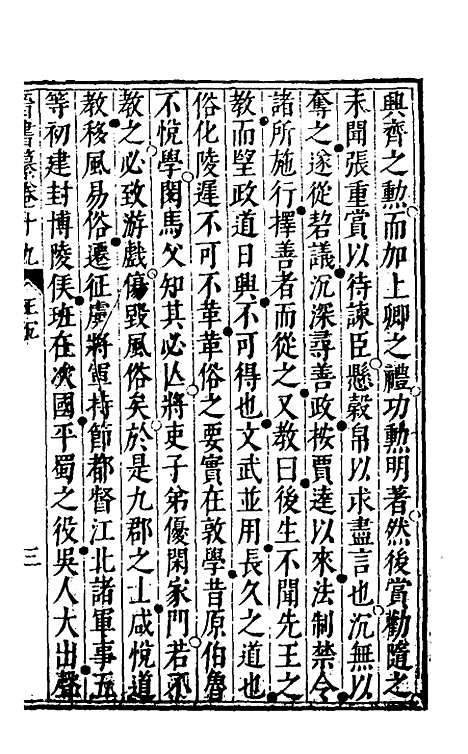 興齊之勲而加上卿之禮功勲明著然後賞勸隨之
未聞張重賞以待諫臣懸穀帛以求盡言也沉無以
奪之遂從䂮議沉深尋善政按賈逵以來法制禁令
諸所施行擇善者而從之又教曰後生不聞先王之
教而望政道日興不可得也文武並用長久之道也
俗化陵遲不可不革革俗之要實在敦學昔原伯魯
不悅學閔馬父知其必亾將吏子弟優閑家門若不
教之必致游戲傷毀風俗矣於是九郡之士咸悅道
教移風易俗遷征虜將軍持節都督江北諸軍事五
等初建封博陵侯班在次國平蜀之役吳人大出聲
晉書纂卷十九
三